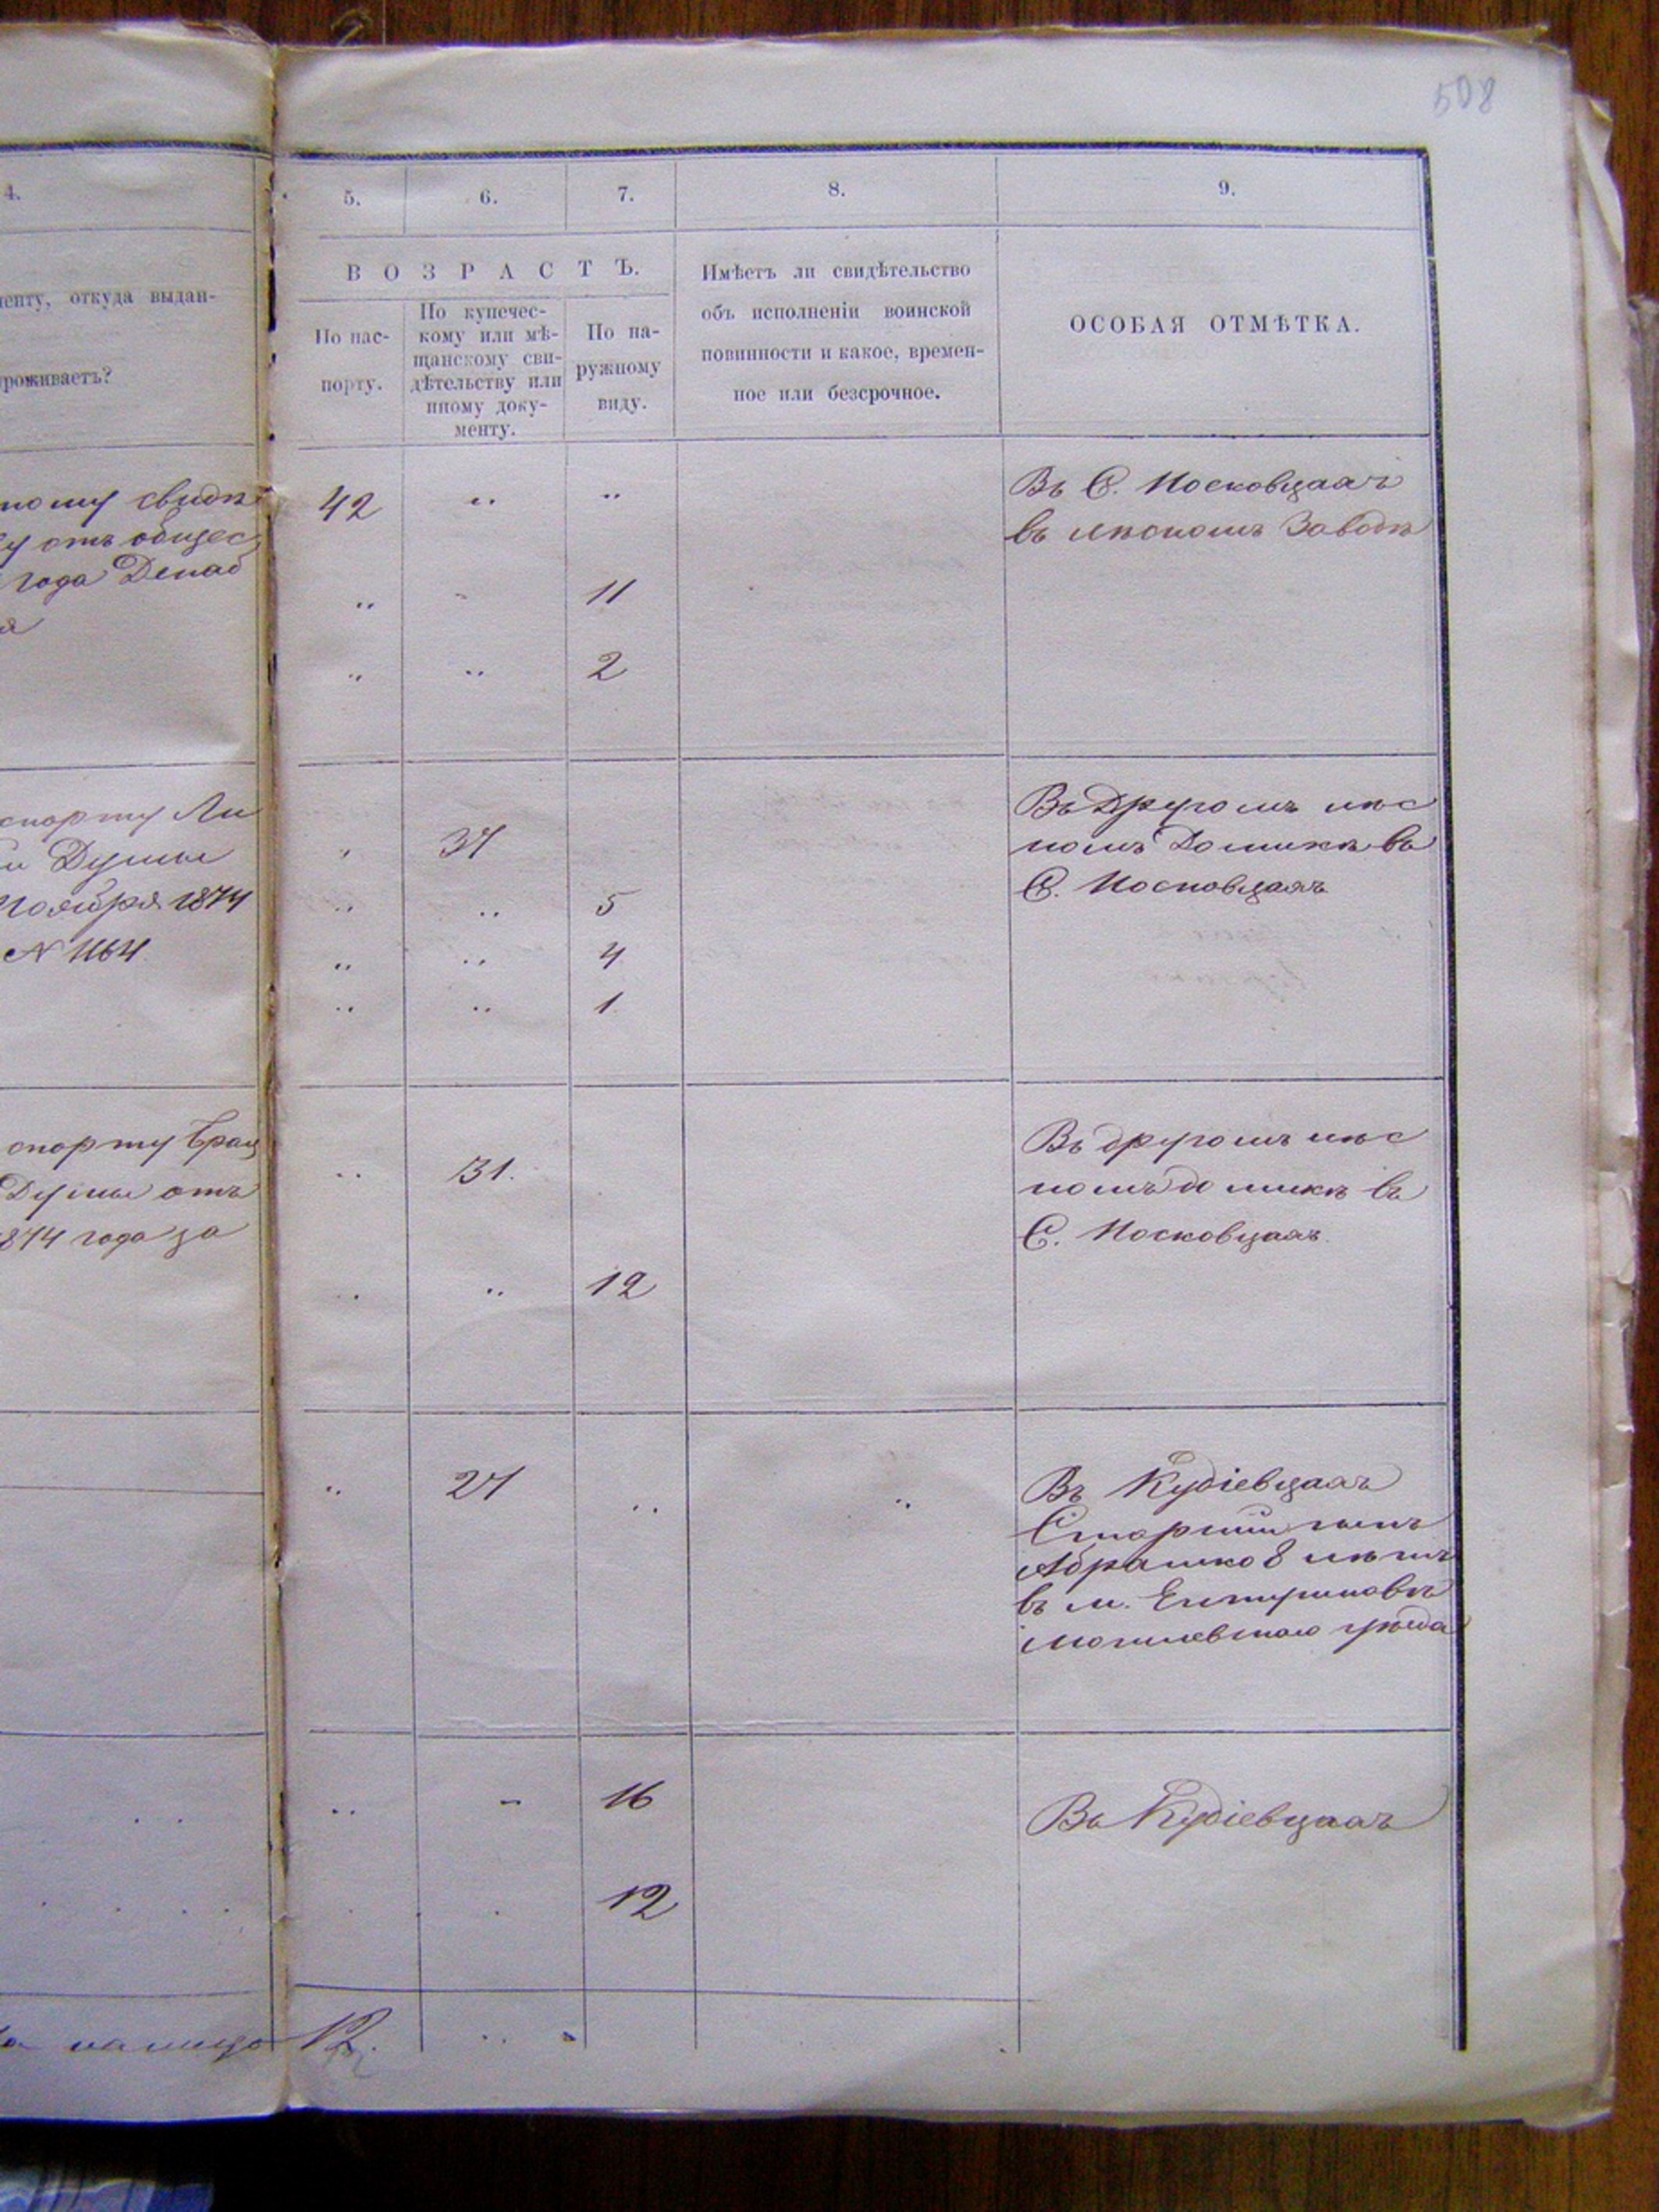 508
4. 5. 6. 7. 8. 9.
менту, откуда выдан-
проживаетъ?
ВОЗРАСТЪ.
По пас-
порту.
По купечес-
кому или мѣ-
щанскому сви-
дѣтельству или
иному доку-
менту.
По на-
ружному
виду.
Имѣетъ ли свидѣтельство
объ исполненіи воинской
повинности и какое, времен-
ное или безсрочное.
ОСОБАЯ ОТМѢТКА.
ному свидѣ
у отъ общес
года Декаб
я
42 " "
" - 11
" " 2
Въ С. Московцахъ
въ лѣсномъ Заводѣ
спорту Ли
и Думы
Ноября 1874
N 1164
" 37
" " 5
" " 4
" " 1
Въ Другомъ мѣс
номъ Домикѣ въ
С. Московцахъ
спорту Брац
Думы отъ
874 года за
" 31.
" " 12
Въ другомъ мѣс
номъ домикѣ въ
С. Московцахъ
" 27 " "
Въ Кудіевцахъ
Старшій сынъ
Абрамко 8 лѣтъ
въ м.
Могилевскаго уѣзда
" - 16
12
Въ Кудіевцахъ
на лицо 12.